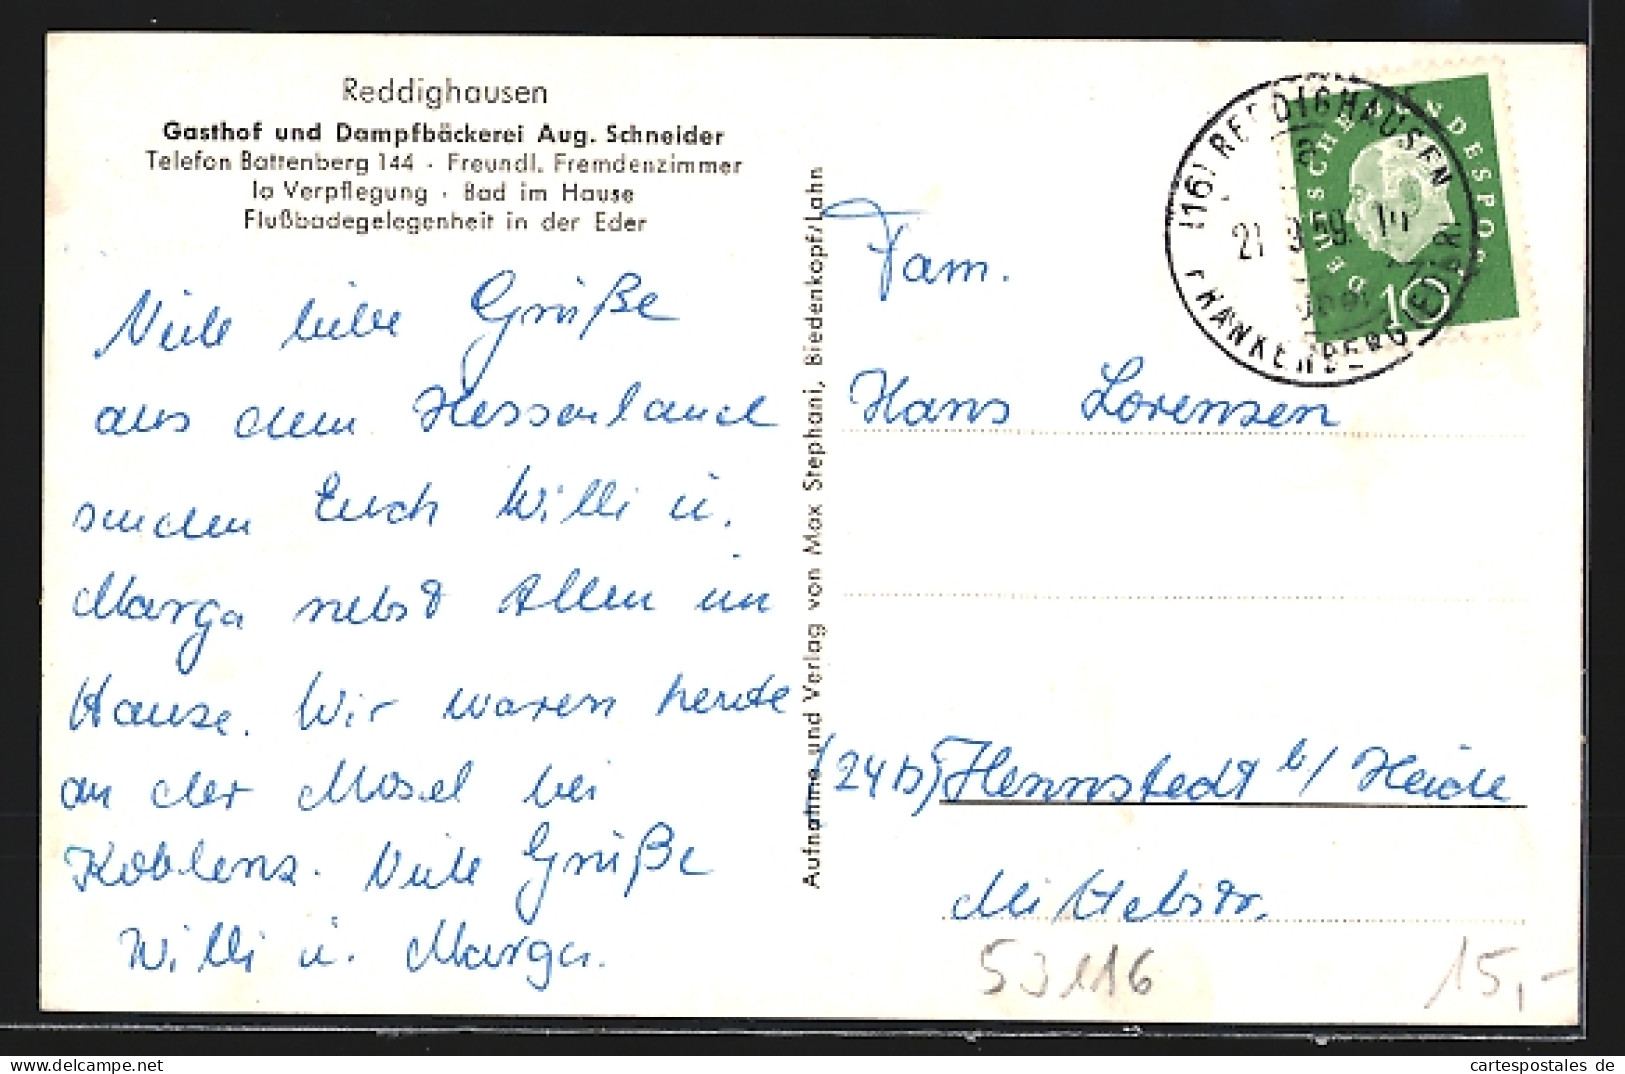 Reddighausen
Gasthof und Dampfbäckerei Aug. Schneider
Telefon Battenberg 144 · Freundl. Fremdenzimmer
Ia Verpflegung · Bad im Hause
Flußbadegelegenheit in der Eder
Viele liebe Grüße
aus dem Hessenland
senden Euch Willi u.
Marga nebst Allen im
Hause. Wir waren heute
an der Mosel bei
Koblenz. Viele Grüße
Willi u. Marga.
Aufnahme und Verlag von Max Stephani, Biedenkopf/Lahn
(16) REDDIGHAUSEN
FRANKENBERG (EDER)
DEUTSCHE BUNDESPOST
10
Fam.
Hans Lorensen
(24b) Hennstedt b/ Heide
Mittelstr.
53116
15,-
www.delcampe.net
cartespostales de